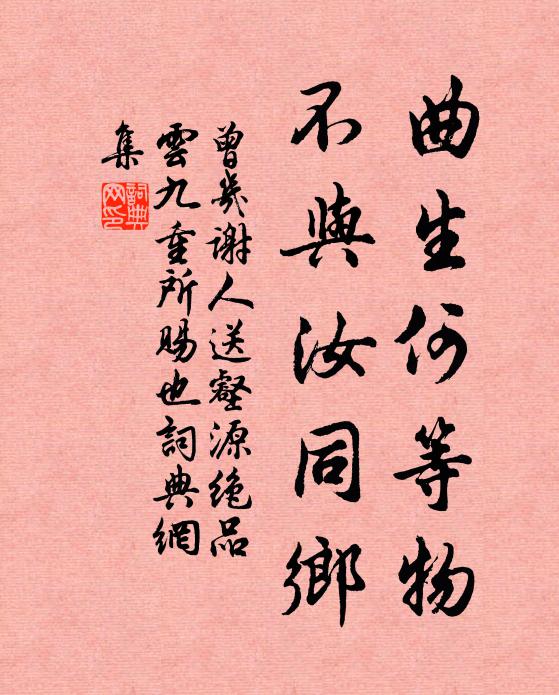 曲生何等物
不與汝同鄉
曾幾謝人送壑源絶品
雲九重所賜也詞典網
集
詞典
网印